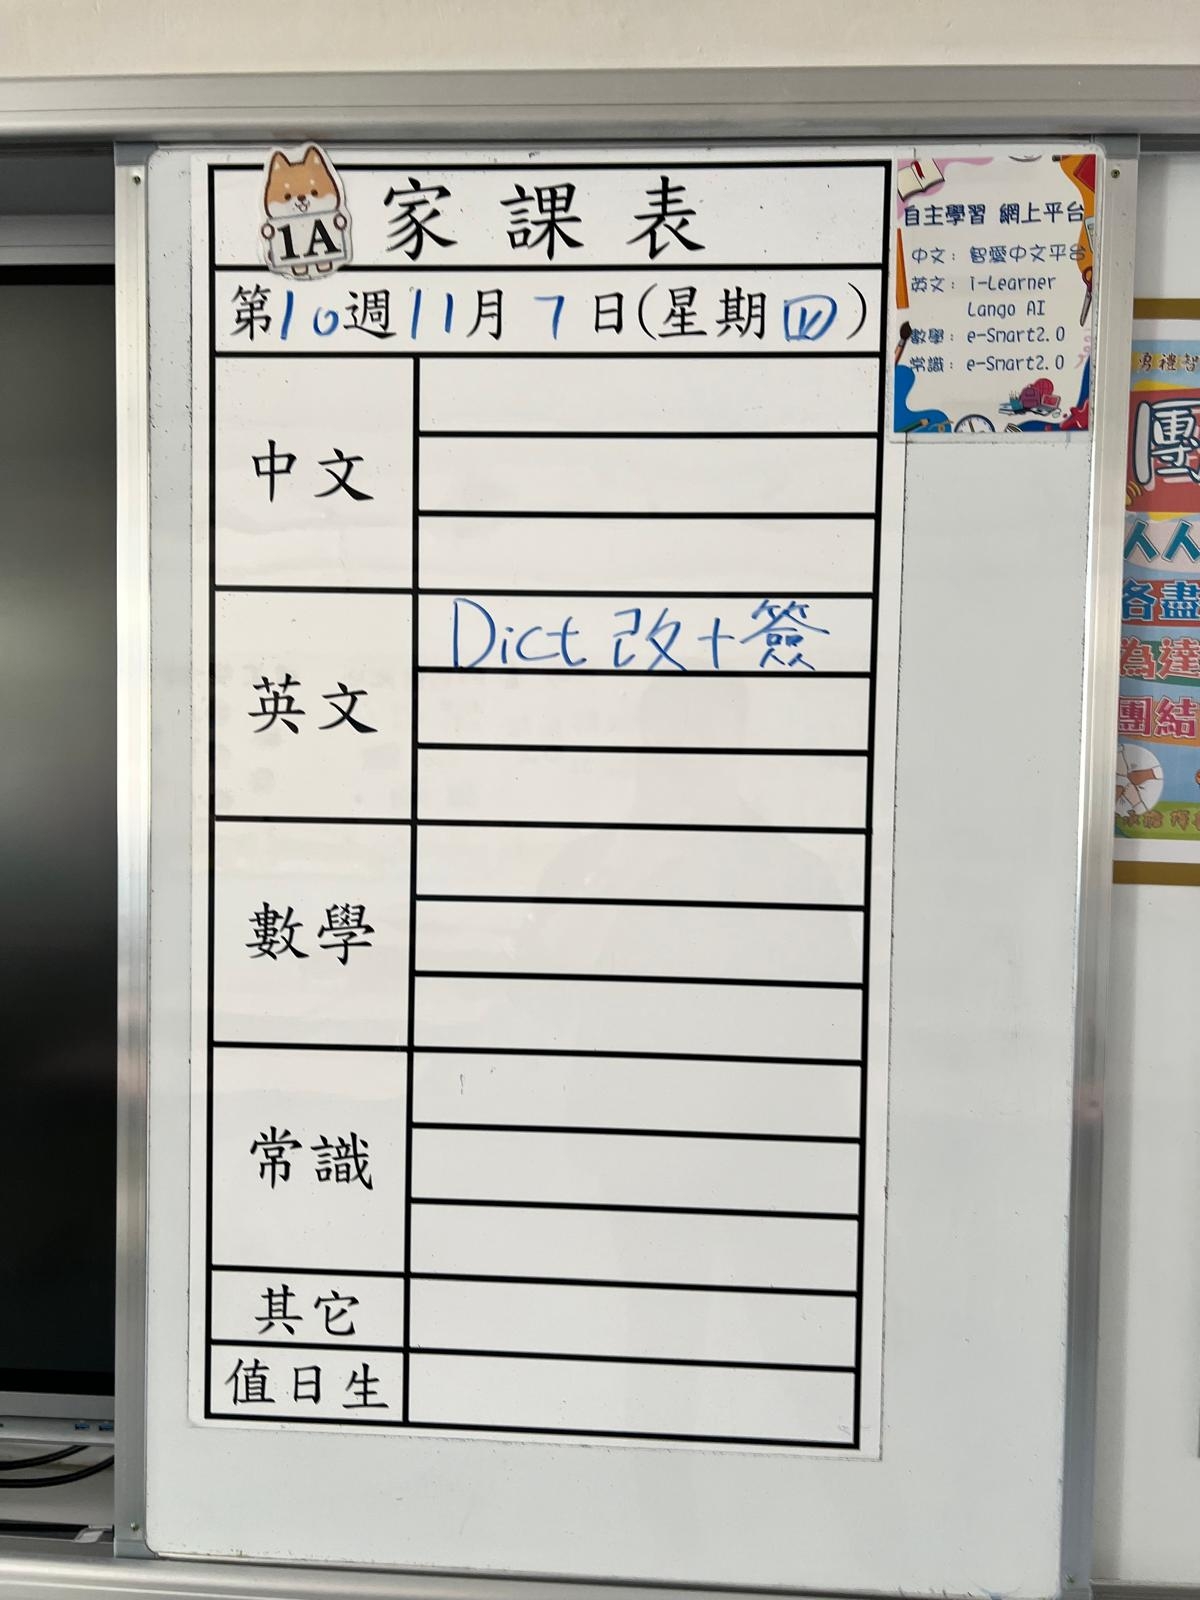 1A 家課表
第10週11月7日(星期四)
中文
英文
Dict 改+簽
數學
常識
其它
值日生
自主學習 網上平台
中文: 智愛中文平台
英文: I-Learner
Lango AI
數學: e-Smart2.0
常識: e-Smart2.0
勇禮智
團
人人
各盡
為達
團結